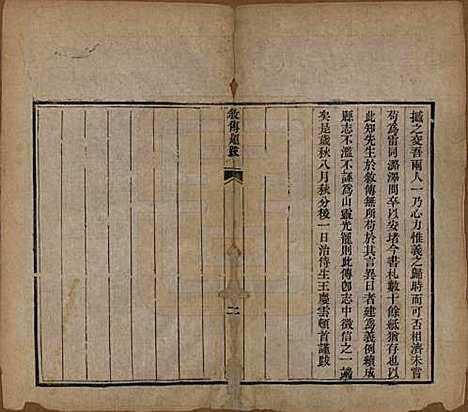 撼之变吾兩人一乃心力惟義之歸時而可否相濟未嘗
苟爲雷同潞澤間卒以安堵今書札數十餘紙猶存也以
此知先生於敘傳無所苟於其言異日者建爲義例續成
縣志不濫不誣爲山靈光寵則此傳卽志中徵信之一
矣是歲秋八月秋分後一日治侍生王慶雲頓首謹跋
敘傳題跋
二